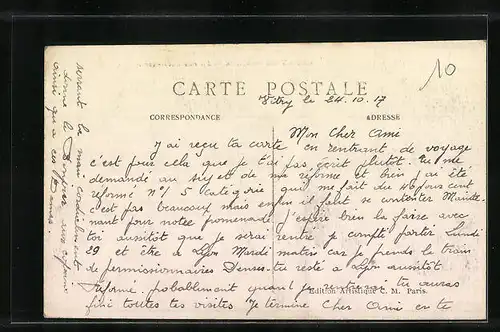 CARTE POSTALE
CORRESPONDANCE
ADRESSE
10
Vitry le 24.10.17
Mon Cher Ami
J'ai reçu ta carte en rentrant de voyage
c'est pour cela que je t'ai pas écrit plutôt. Tu me
demandé au sujet de ma réforme et bien j'ai été
réformé N° 5 catégorie qui me fait du 40 pour cent
c'est pas beaucoup mais enfin il faut se contenter Mainte-
nant pour notre promenade j'espère bien la faire avec
toi aussitôt que je serai rentré je compte partir Lundi
29 et être a Lyon Mardi matin car je prends le train
de permissionnaires Denses-tu reste a Lyon aussitôt
réformé. probablement quand je rentrerai tu auras
fini toutes tes visites. Je termine Cher Ami en te
Edition Artistique C. M. Paris.
serrant la main cordialement
donne le bonjour aux copains
ainsi qu'a ces Dames.